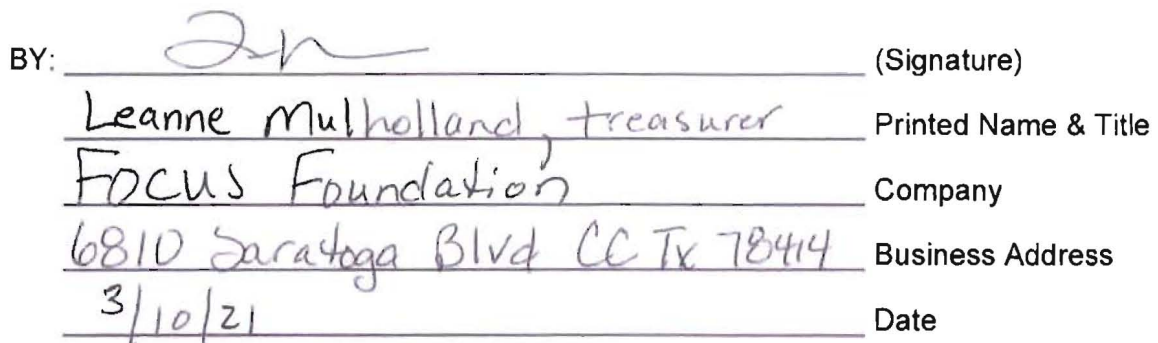 BY: (Signature)
Leanne Mulholland, treasurer Printed Name & Title
Focus Foundation Company
6810 Saratoga Blvd CC Tx 78414 Business Address
3/10/21 Date